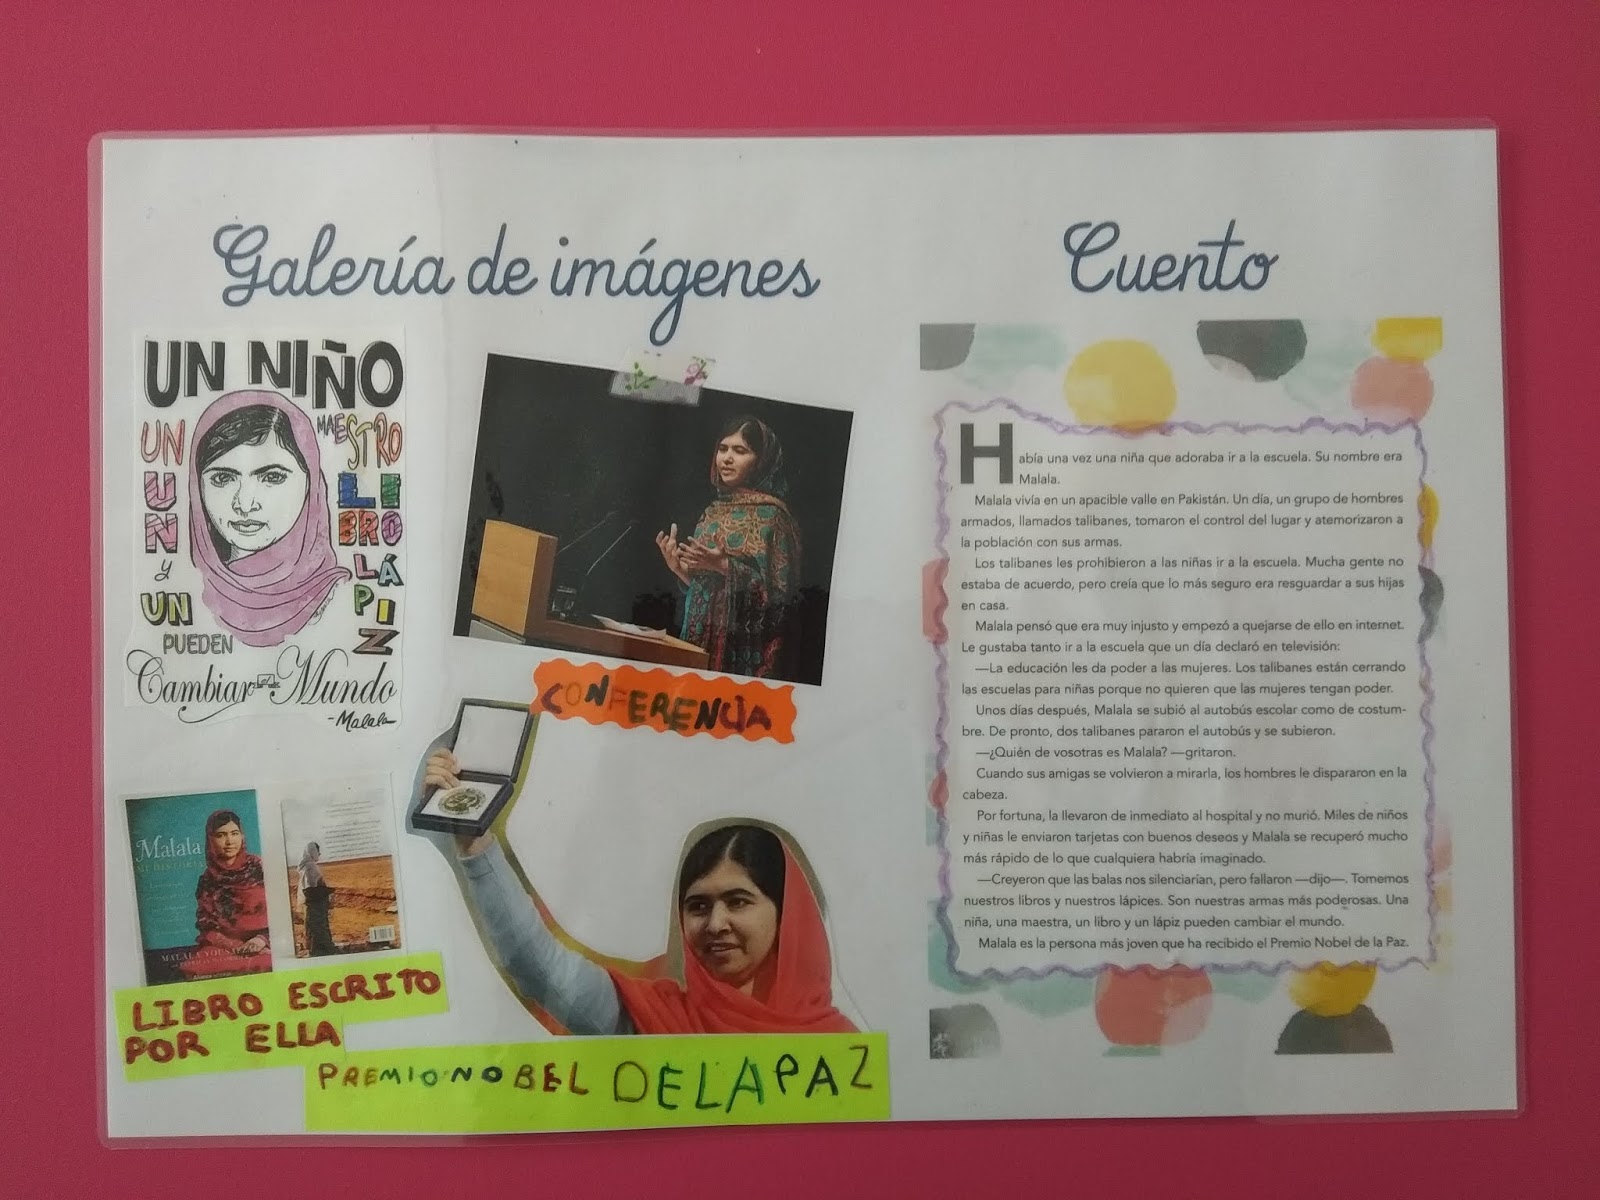 Galería de imágenes
UN NIÑO
UN
UN
Y
UN
MAESTRO
LI
BRO
LÁ
PI
Z
PUEDEN
Cambiar el Mundo
-Malala
CONFERENCIA
Malala
MI HISTORIA
MALALA YOUSAFZAI
LIBRO ESCRITO
POR ELLA
PREMIO NOBEL DE LA PAZ
Cuento
Había una vez una niña que adoraba ir a la escuela. Su nombre era
Malala.
Malala vivía en un apacible valle en Pakistán. Un día, un grupo de hombres
armados, llamados talibanes, tomaron el control del lugar y atemorizaron a
la población con sus armas.
Los talibanes les prohibieron a las niñas ir a la escuela. Mucha gente no
estaba de acuerdo, pero creía que lo más seguro era resguardar a sus hijas
en casa.
Malala pensó que era muy injusto y empezó a quejarse de ello en internet.
Le gustaba tanto ir a la escuela que un día declaró en televisión:
—La educación les da poder a las mujeres. Los talibanes están cerrando
las escuelas para niñas porque no quieren que las mujeres tengan poder.
Unos días después, Malala se subió al autobús escolar como de costum-
bre. De pronto, dos talibanes pararon el autobús y se subieron.
—¿Quién de vosotras es Malala? —gritaron.
Cuando sus amigas se volvieron a mirarla, los hombres le dispararon en la
cabeza.
Por fortuna, la llevaron de inmediato al hospital y no murió. Miles de niños
y niñas le enviaron tarjetas con buenos deseos y Malala se recuperó mucho
más rápido de lo que cualquiera habría imaginado.
—Creyeron que las balas nos silenciarían, pero fallaron —dijo—. Tomemos
nuestros libros y nuestros lápices. Son nuestras armas más poderosas. Una
niña, una maestra, un libro y un lápiz pueden cambiar el mundo.
Malala es la persona más joven que ha recibido el Premio Nobel de la Paz.